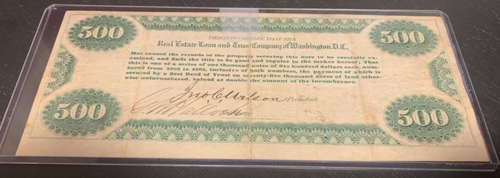 500
500
Real Estate Loan and Trust Company of Washington, D.C.,
Has caused the records of the property securing this note to be carefully ex-
amined, and finds the title to be good and regular in the maker hereof; That
this is one of a series of one thousand notes of five hundred dollars each, num-
bered from to inclusive of both numbers, the payment of which is
secured by a first Deed of Trust on seventy-five thousand acres of land other-
wise unincumbered, valued at double the amount of the incumbrance.
President
500
500